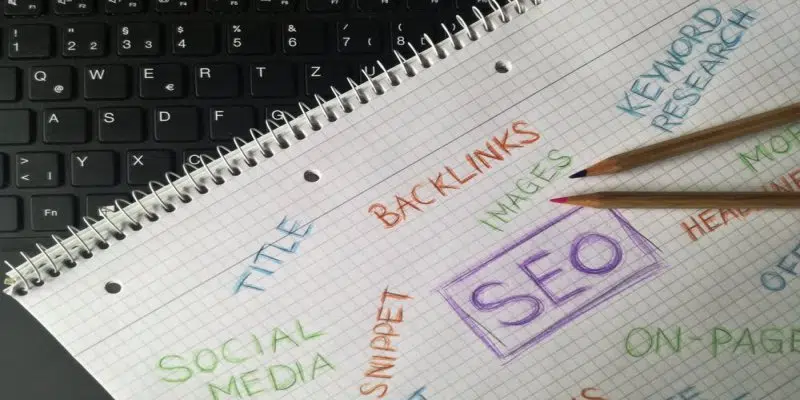 ! 1
" 2 2
§ 3 3
$ 4
% 5
& 6
/ 7
( 8
Q @
W
E €
R
T
Z
A
S
D
F
G
> < |
Y
X
C
Fn
KEYWORD
RESEARCH
BACKLINKS
IMAGES
TITLE
SEO
SNIPPET
SOCIAL
MEDIA
ON-PAGE